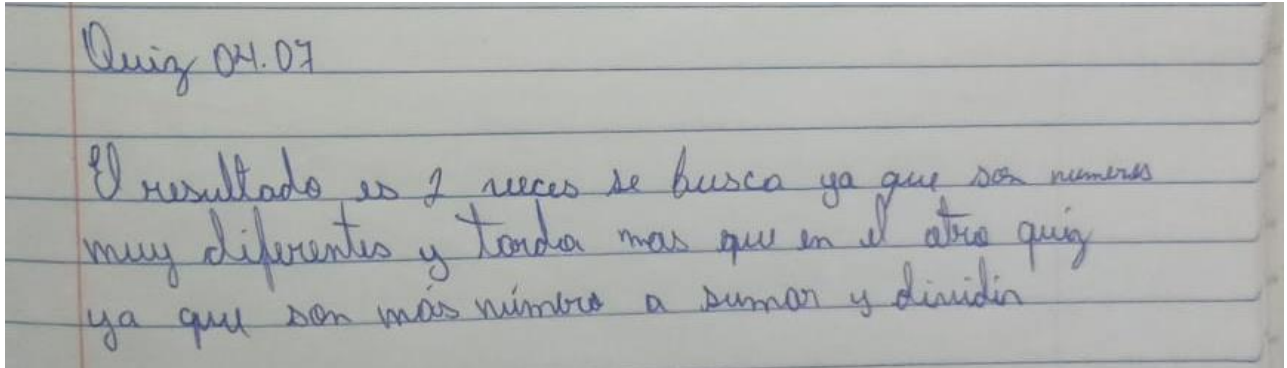 Quiz 04.07
El resultado es 2 veces se busca ya que son numeros
muy diferentes y tarda mas que en el otro quiz
ya que son más número a sumar y dividir